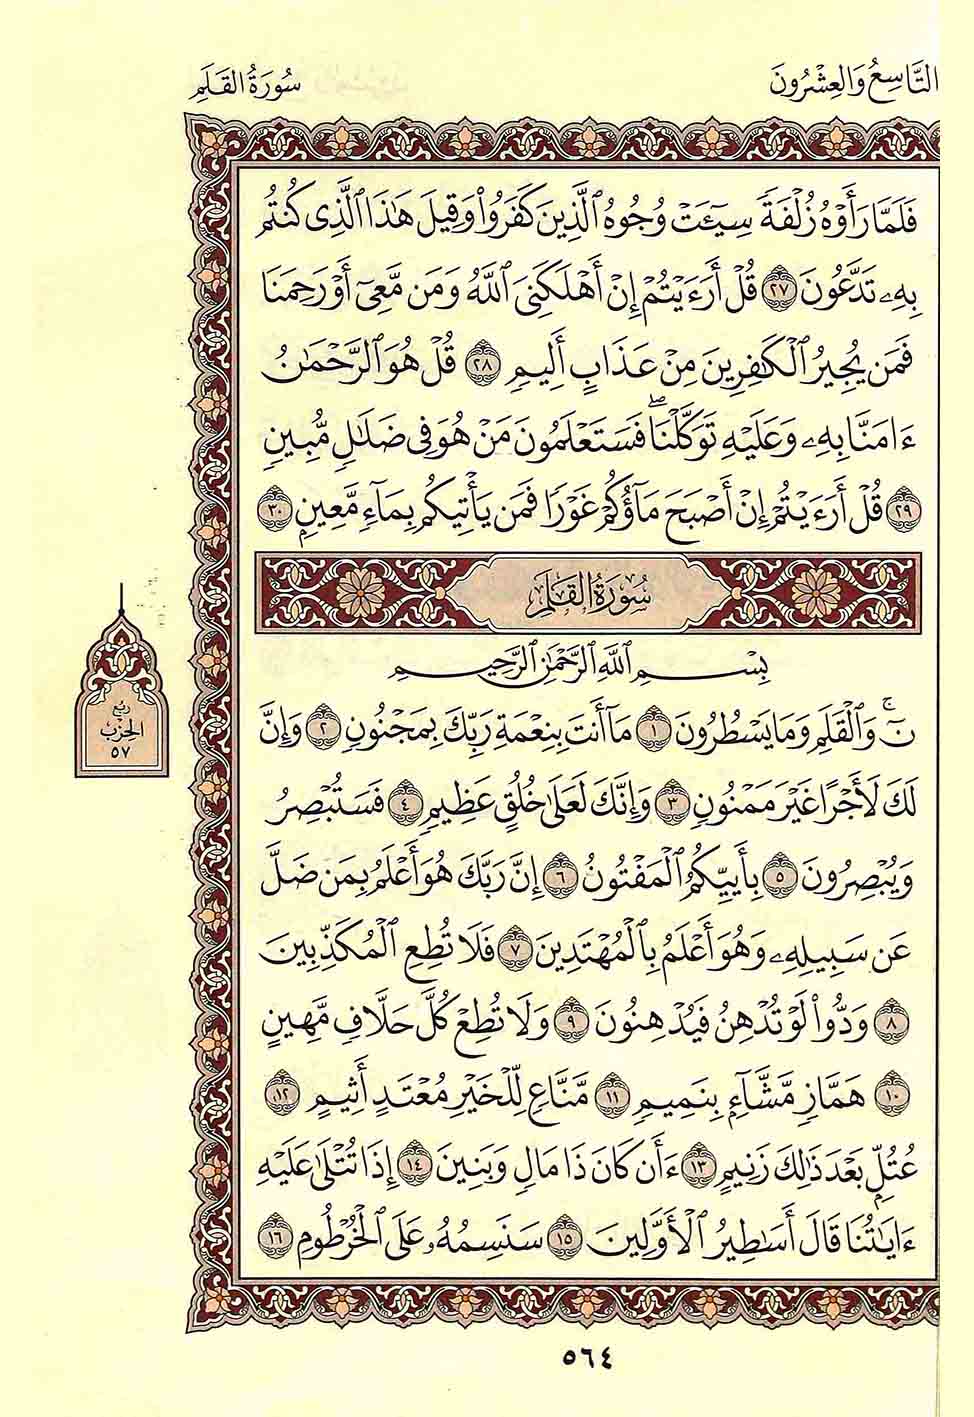 التَّاسِعُ وَالعِشْرُونَ
سُورَةُ القَلَمِ
فَلَمَّا رَأَوْهُ زُلْفَةً سِيٓـَٔتْ وُجُوهُ ٱلَّذِينَ كَفَرُوا۟ وَقِيلَ هَٰذَا ٱلَّذِى كُنتُم
بِهِۦ تَدَّعُونَ ٢٧ قُلْ أَرَءَيْتُمْ إِنْ أَهْلَكَنِىَ ٱللَّهُ وَمَن مَّعِىَ أَوْ رَحِمَنَا
فَمَن يُجِيرُ ٱلْكَٰفِرِينَ مِنْ عَذَابٍ أَلِيمٍ ٢٨ قُلْ هُوَ ٱلرَّحْمَٰنُ
ءَامَنَّا بِهِۦ وَعَلَيْهِ تَوَكَّلْنَا ۖ فَسَتَعْلَمُونَ مَنْ هُوَ فِى ضَلَٰلٍ مُّبِينٍ
٢٩ قُلْ أَرَءَيْتُمْ إِنْ أَصْبَحَ مَآؤُكُمْ غَوْرًا فَمَن يَأْتِيكُم بِمَآءٍ مَّعِينٍۭ ٣٠
سُورَةُ القَلَمِ
بِسْمِ ٱللَّهِ ٱلرَّحْمَٰنِ ٱلرَّحِيمِ
نٓ ۚ وَٱلْقَلَمِ وَمَا يَسْطُرُونَ ١ مَآ أَنتَ بِنِعْمَةِ رَبِّكَ بِمَجْنُونٍ ٢ وَإِنَّ
لَكَ لَأَجْرًا غَيْرَ مَمْنُونٍ ٣ وَإِنَّكَ لَعَلَىٰ خُلُقٍ عَظِيمٍ ٤ فَسَتُبْصِرُ
وَيُبْصِرُونَ ٥ بِأَييِّكُمُ ٱلْمَفْتُونُ ٦ إِنَّ رَبَّكَ هُوَ أَعْلَمُ بِمَن ضَلَّ
عَن سَبِيلِهِۦ وَهُوَ أَعْلَمُ بِٱلْمُهْتَدِينَ ٧ فَلَا تُطِعِ ٱلْمُكَذِّبِينَ
٨ وَدُّوا۟ لَوْ تُدْهِنُ فَيُدْهِنُونَ ٩ وَلَا تُطِعْ كُلَّ حَلَّافٍ مَّهِينٍ
١٠ هَمَّازٍ مَّشَّآءٍۭ بِنَمِيمٍ ١١ مَّنَّاعٍ لِّلْخَيْرِ مُعْتَدٍ أَثِيمٍ ١٢
عُتُلٍّۭ بَعْدَ ذَٰلِكَ زَنِيمٍ ١٣ أَن كَانَ ذَا مَالٍ وَبَنِينَ ١٤ إِذَا تُتْلَىٰ عَلَيْهِ
ءَايَٰتُنَا قَالَ أَسَٰطِيرُ ٱلْأَوَّلِينَ ١٥ سَنَسِمُهُۥ عَلَى ٱلْخُرْطُومِ ١٦
رُبْعُ
الحِزْبِ
٥٧
٥٦٤